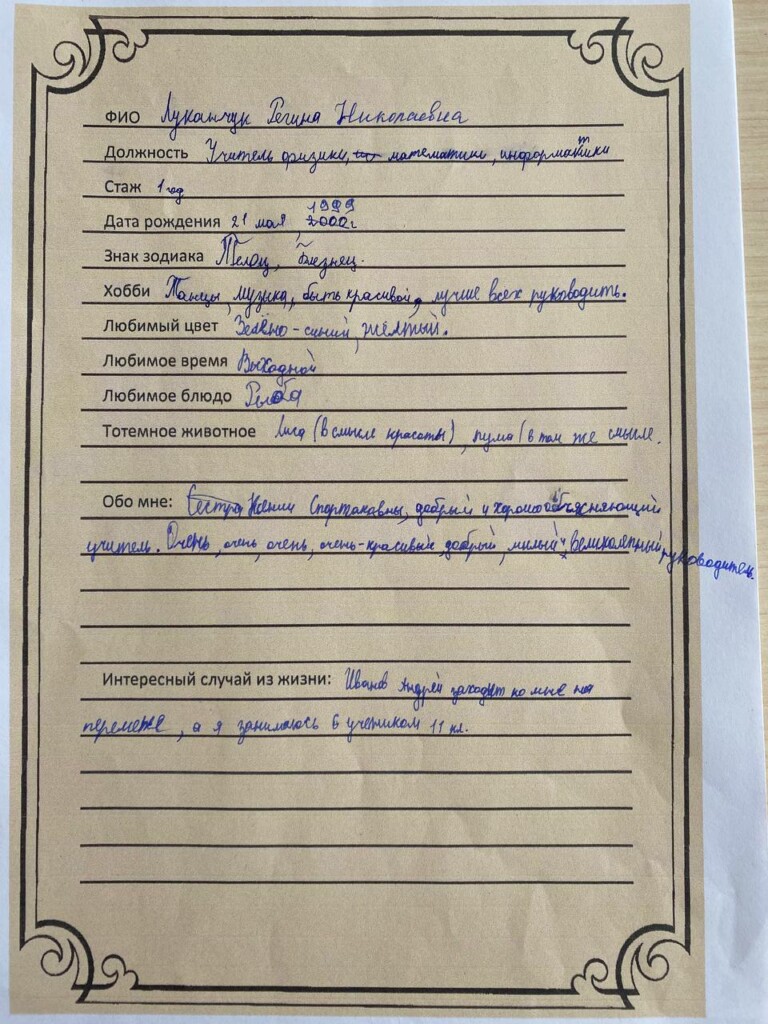 ФИО Луканчук Регина Николаевна
Должность Учитель физики, математики, информатики
Стаж 1 год
Дата рождения 21 мая 1999 2000г
Знак зодиака Телец, Близнец.
Хобби Танцы, музыка, быть красивой, лучше всех руководить.
Любимый цвет Зелёно-синий, жёлтый.
Любимое время Выходной
Любимое блюдо Рыба
Тотемное животное Лиса (в смысле красоты), пума (в том же смысле.
Обо мне: Сестра Ксении Спартаковны, добрый и хорошо объясняющий
учитель. Очень, очень, очень, очень-красивый, добрый, милый и великолепный руководитель.
Интересный случай из жизни: Иванов Андрей заходит ко мне на
перемене, а я занимаюсь с учеником 11 кл.